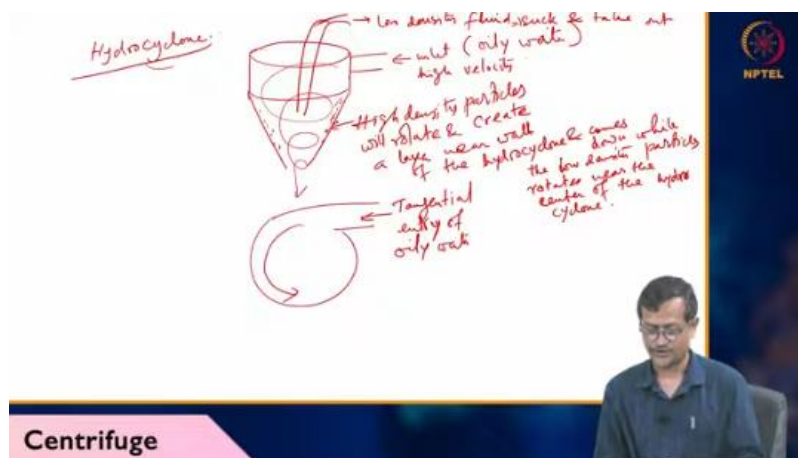 Hydrocyclone.
→ Low density fluid suck & take out
← inlet (oily water)
high velocity
High density particles
will rotate & create
a layer near wall
of the hydrocyclone & comes
down while
the low density particles
rotates near the
center of the hydro
cyclone.
Tangential
entry of
oily water
NPTEL
Centrifuge